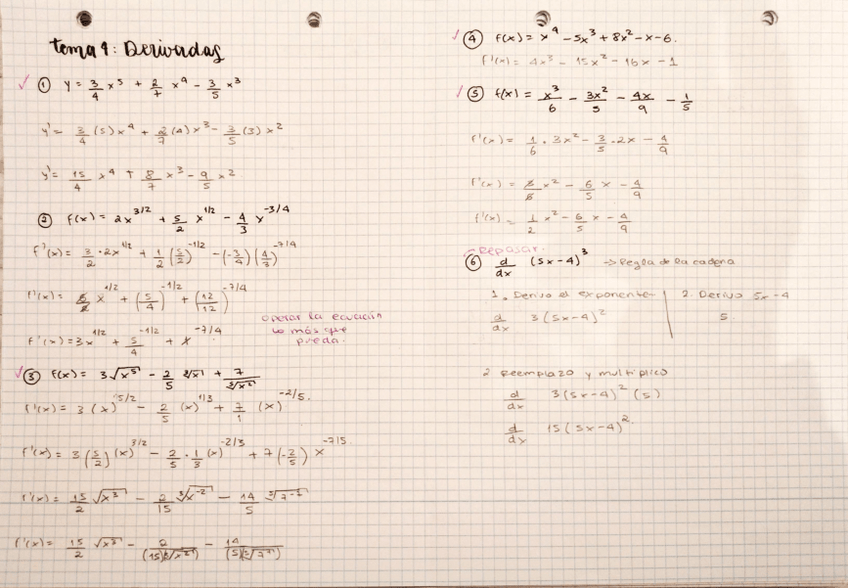 tema 4: Derivadas
✓ ① y = 3/4 x⁵ + 2/7 x⁴ - 3/5 x³
y' = 3/4 (5) x⁴ + 2/7 (4) x³ - 3/5 (3) x²
y' = 15/4 x⁴ + 8/7 x³ - 9/5 x²
② f(x) = 2x^3/2 + 5/2 x^1/2 - 4/3 x^-3/4
f'(x) = 3/2 · 2x^1/2 + 1/2 (5/2)^-1/2 - (-3/4) (4/3)^-7/4
f'(x) = 6/2 x^1/2 + (5/4)^-1/2 + (12/12)^-7/4
operar la ecuación
lo más que
pueda.
f'(x) = 3x^1/2 + 5/4^-1/2 + x^-7/4
✓ ③ f(x) = 3√x⁵ - 2/5 ∛x + 7/⁵√x²
f'(x) = 3 (x)^5/2 - 2/5 (x)^1/3 + 7/1 (x)^-2/5.
f'(x) = 3 (5/2) (x)^3/2 - 2/5 · 1/3 (x)^-2/3 + 7 (-2/5) x^-7/5
f'(x) = 15/2 √x³ - 2/15 ∛x⁻² - 14/5
f'(x) = 15/2 √x³ - 2/(15)(∛x²) - 14
✓ ④ f(x) = x⁴ - 5x³ + 8x² - x - 6.
f'(x) = 4x³ - 15x² - 16x - 1
✓ ⑤ f(x) = x³/6 - 3x²/5 - 4x/9 - 1/5
f'(x) = 1/6 · 3x² - 3/5 · 2x - 4/9
f'(x) = x² - 6/5 x - 4/9
f'(x) = 1/2 x² - 6/5 x - 4/9
- Repasar.
⑥ d/dx (5x-4)³ → Regla de la cadena
1. Derivo el exponente
d/dx 3(5x-4)²
2. Derivo 5x-4
5
2 Reemplazo y multiplico
d/dx 3(5x-4)² (5)
d/dx 15(5x-4)².